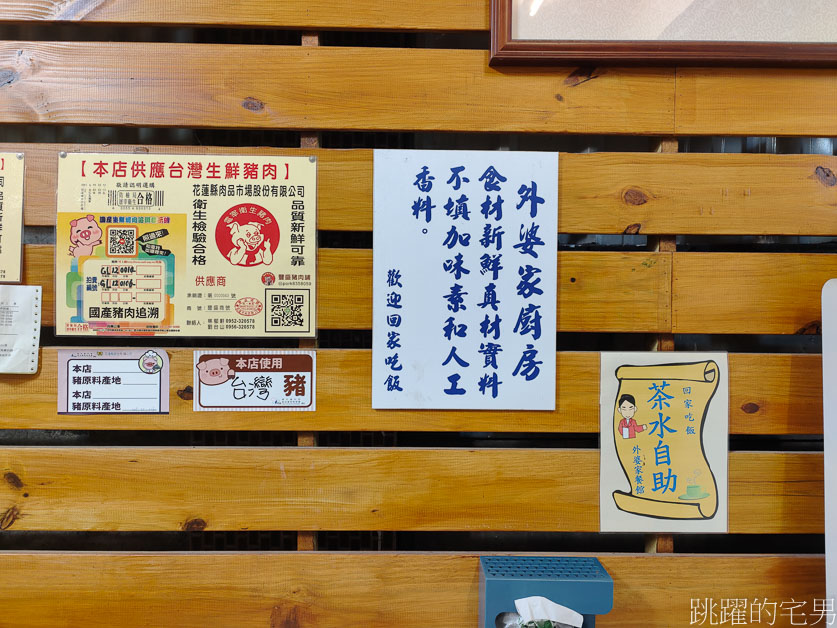 【本店供應台灣生鮮豬肉】
敬請說明選購
合格
國產豬肉追溯
GL120010
GL120010
花蓮縣肉品市場股份有限公司
衛生檢驗合格
電宰衛生豬肉
品質新鮮可靠
供應商
豐盛豬肉舖
0952-328111
0956-328111
本店
豬原料產地
本店
豬原料產地
本店使用
台灣豬
外婆家廚房
食材新鮮真材實料
不填加味素和人工
香料。
歡迎回家吃飯
回家吃飯
茶水自助
外婆家餐館
跳躍的宅男